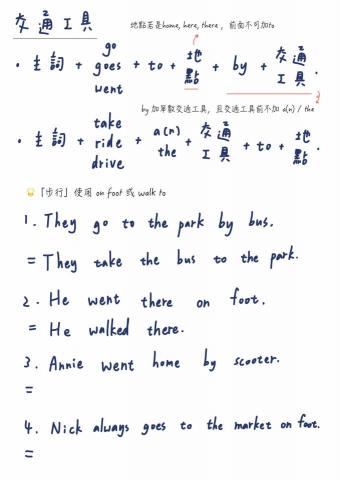 交通工具
地點若是home, here, there , 前面不可加to
• 主詞 + go goes went + to + 地點 + by + 交通工具 .
by 加單數交通工具, 且交通工具前不加 a(n) / the
• 主詞 + take ride drive + a(n) the + 交通工具 + to + 地點 .
「步行」使用 on foot 或 walk to
1. They go to the park by bus.
= They take the bus to the park.
2. He went there on foot.
= He walked there.
3. Annie went home by scooter.
=
4. Nick always goes to the market on foot.
=